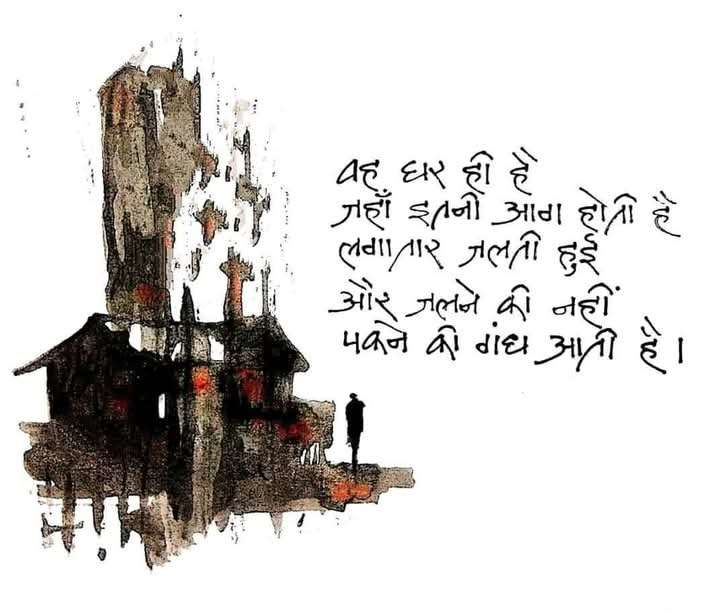 वह घर ही है
जहाँ इतनी आग होती है
लगातार जलती हुई
और जलने की नहीं
पकने की गंध आती है।